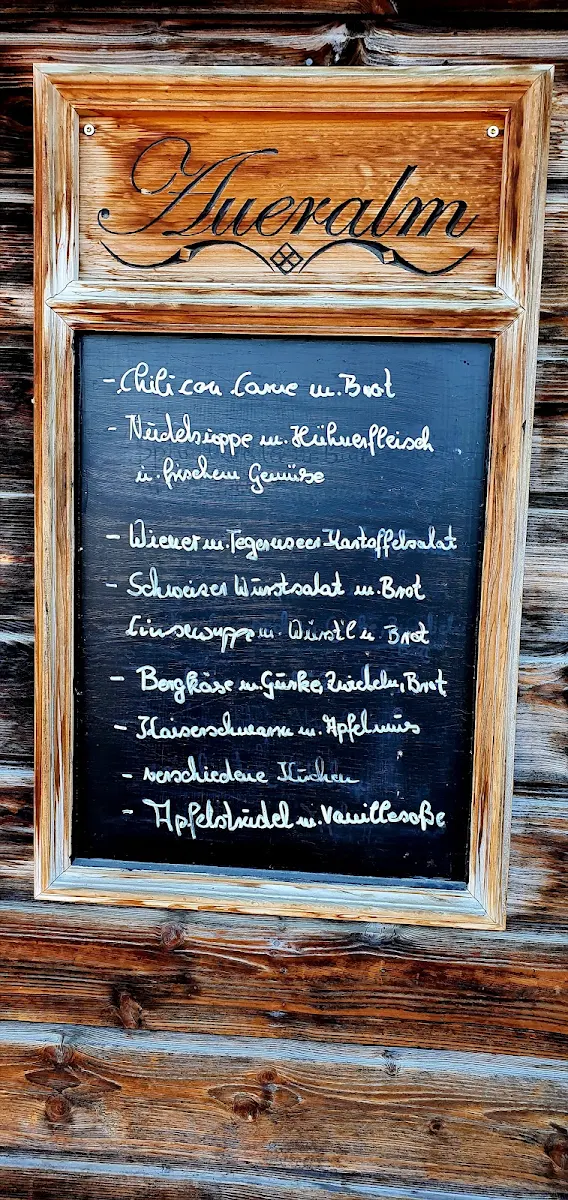 Aueralm
- Chili con Carne m. Brot
- Nudelsuppe m. Hühnerfleisch
u. frischem Gemüse
- Wiener m. Tegernseer Kartoffelsalat
- Schweizer Wurstsalat m. Brot
Linsensuppe m. Würstl u. Brot
- Bergkäse m. Gurke, Zwiebeln, Brot
- Kaiserschmarrn m. Apfelmus
- verschiedene Kuchen
- Apfelstrudel m. Vanillesoße